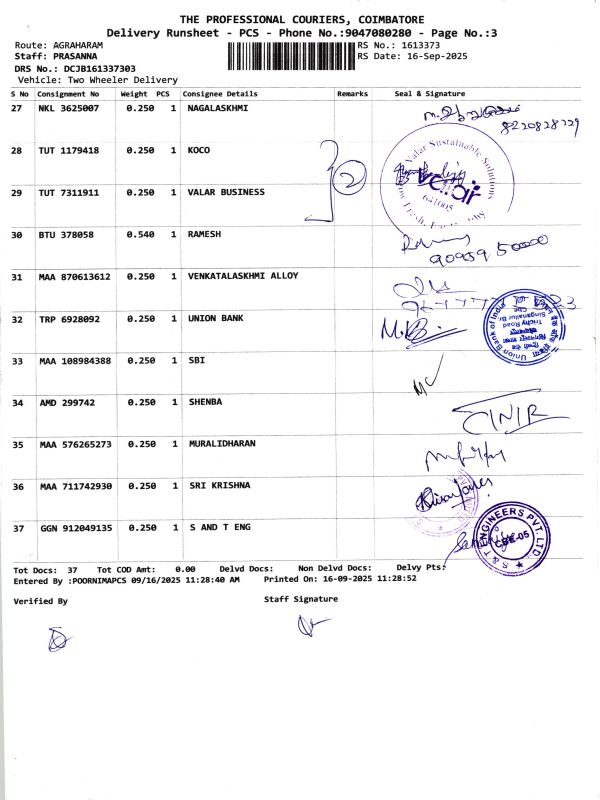 THE PROFESSIONAL COURIERS, COIMBATORE
Delivery Runsheet - PCS - Phone No.:9047080280 - Page No.:3
Route: AGRAHARAM RS No.: 1613373
Staff: PRASANNA RS Date: 16-Sep-2025
DRS No.: DCJB161337303
Vehicle: Two Wheeler Delivery
S No Consignment No Weight PCS Consignee Details Remarks Seal & Signature
27 NKL 3625007 0.250 1 NAGALASKHMI
8220828729
28 TUT 1179418 0.250 1 KOCO
2
Valar Sustainable Solutions
641005
29 TUT 7311911 0.250 1 VALAR BUSINESS
30 BTU 378058 0.540 1 RAMESH
90959 50000
31 MAA 870613612 0.250 1 VENKATALASKHMI ALLOY
32 TRP 6928092 0.250 1 UNION BANK
Union Bank of India
Trichy Road
Singanallur Br
Cbe
33 MAA 108984388 0.250 1 SBI
34 AMD 299742 0.250 1 SHENBA
35 MAA 576265273 0.250 1 MURALIDHARAN
36 MAA 711742930 0.250 1 SRI KRISHNA
37 GGN 912049135 0.250 1 S AND T ENG
S & T ENGINEERS PVT. LTD.
CBE-05
Tot Docs: 37 Tot COD Amt: 0.00 Delvd Docs: Non Delvd Docs: Delvy Pts:
Entered By :POORNIMAPCS 09/16/2025 11:28:40 AM Printed On: 16-09-2025 11:28:52
Verified By Staff Signature